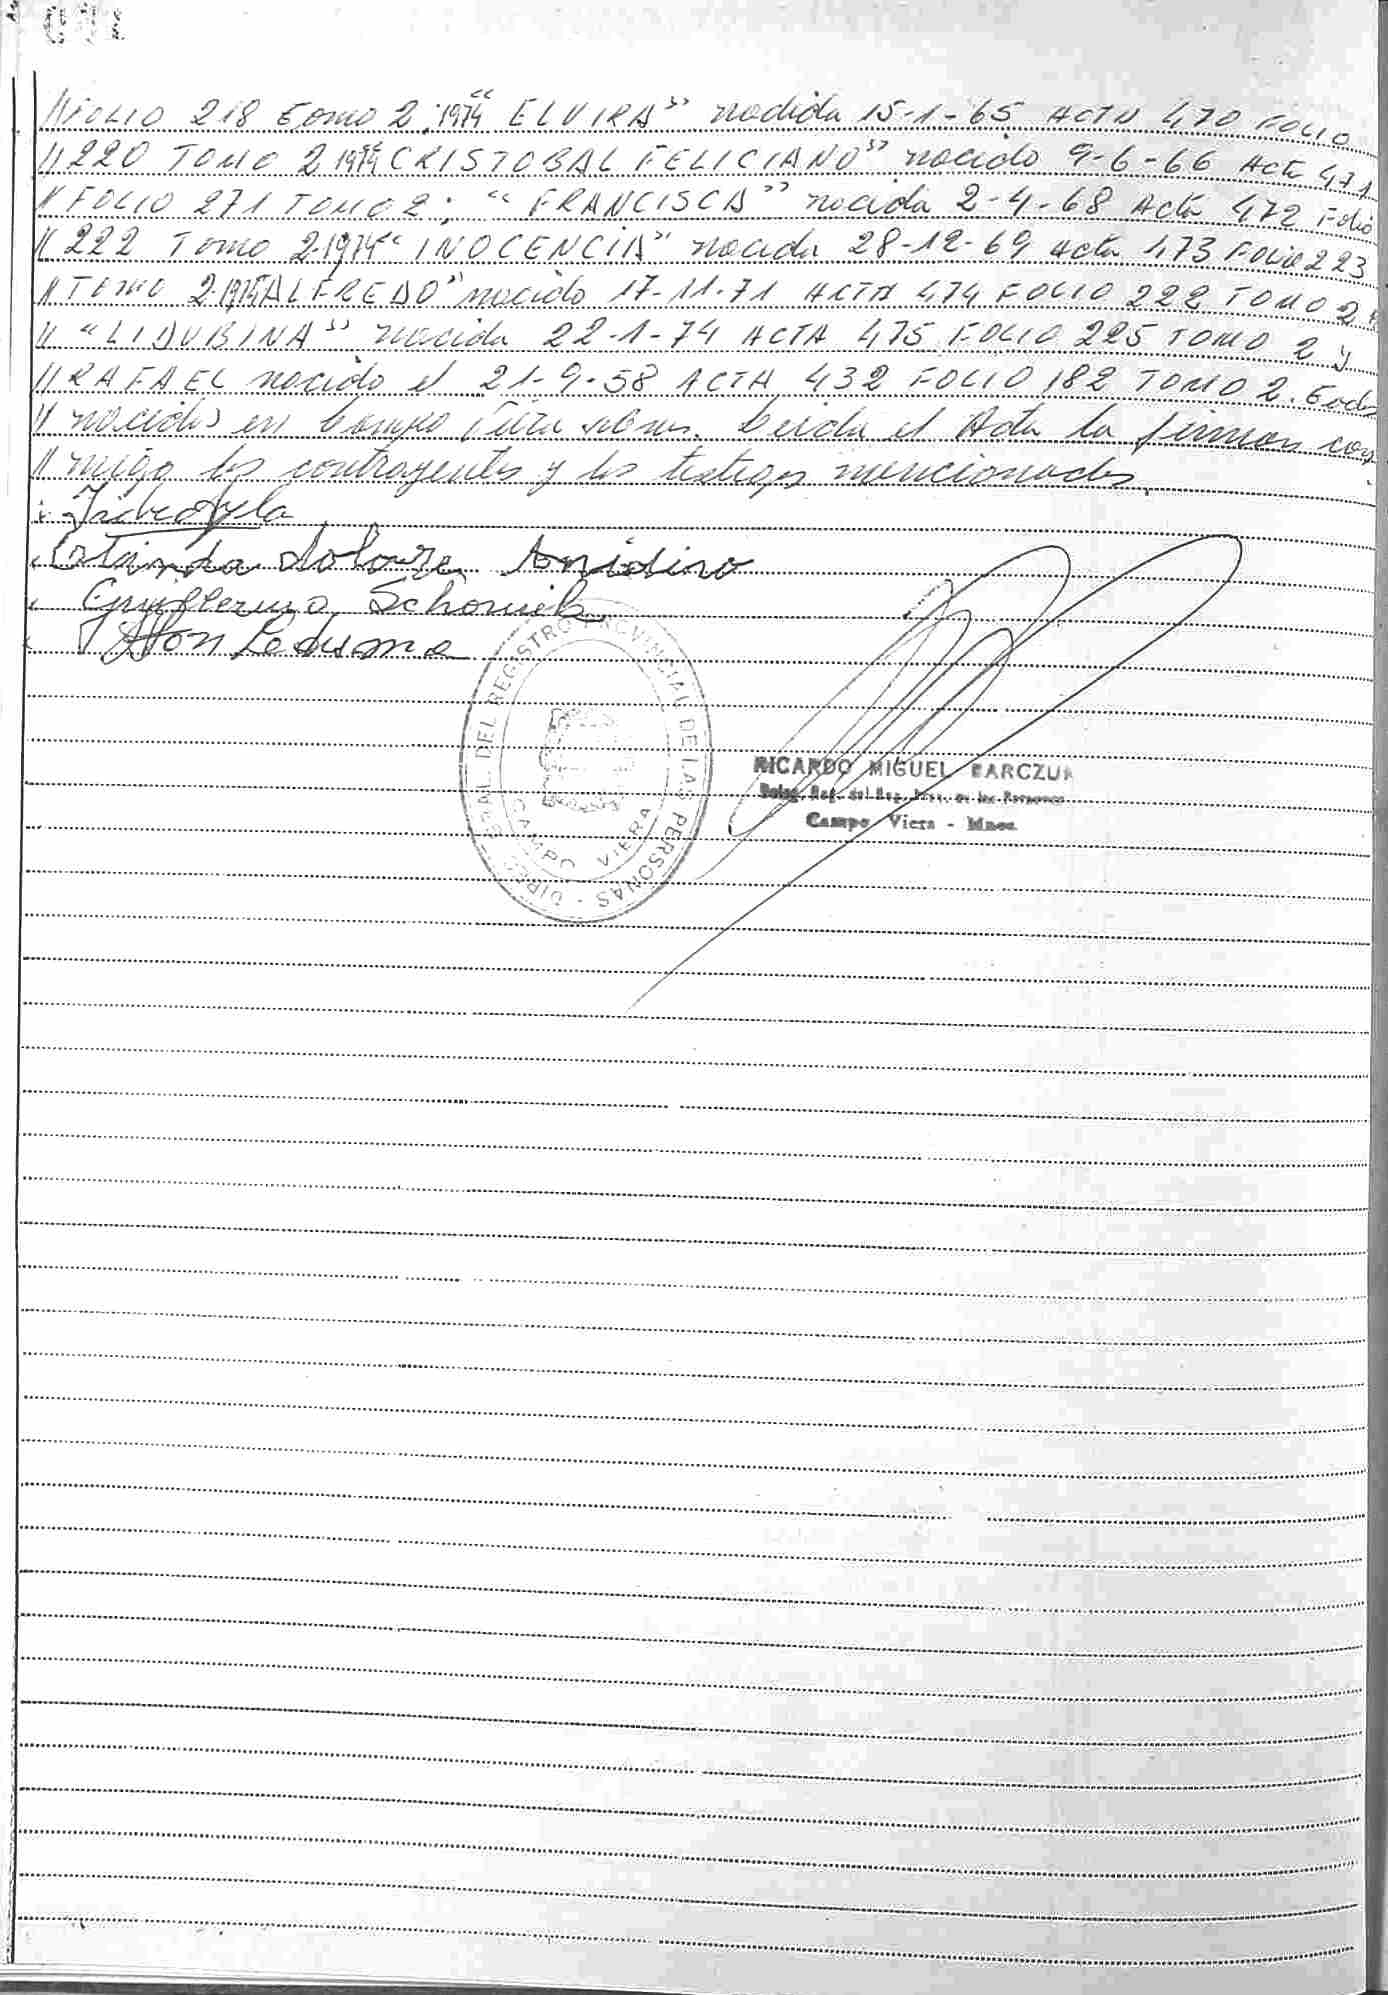 //FOLIO 218 Tomo 2. 1974 "ELVIRA" nacida 15-1-65 ACTA 470 FOLIO
//220 TOMO 2 1974 CRISTOBAL FELICIANO" nacido 9-6-66 Acta 471
//FOLIO 271 TOMO 2; "FRANCISCA" nacida 2-4-68 Acta 472 Folio
//222 Tomo 2-1974 "INOCENCIA" nacida 28-12-69 Acta 473 Folio 223
//TOMO 2 1974 ALFREDO" nacido 17-11-71 ACTA 474 FOLIO 222 TOMO 2
//"LIDUBINA" nacida 22-1-74 ACTA 475 FOLIO 225 TOMO 2 y
//RAFAEL nacido el 21-9-58 ACTA 432 FOLIO 182 TOMO 2. Todos
//nacidos en Campo Leida el Acta la firman con
//migo los contrayentes y los testigos mencionados.
Guillermo
Ledesma
DIREC. GRAL. DEL REGISTRO PROVINCIAL DE LAS PERSONAS -
CAMPO VIERA
RICARDO MIGUEL BARCZUK
Deleg. Reg. del Reg. Prov. de las Personas
Campo Viera - Mnes.